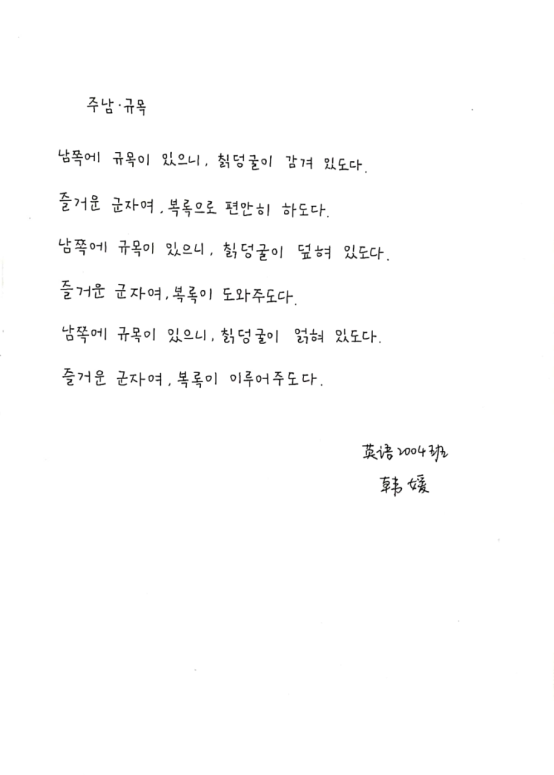 주남·규목
남쪽에 규목이 있으니, 칡덩굴이 감겨 있도다.
즐거운 군자여, 복록으로 편안히 하도다.
남쪽에 규목이 있으니, 칡덩굴이 덮혀 있도다.
즐거운 군자여, 복록이 도와주도다.
남쪽에 규목이 있으니, 칡덩굴이 얽혀 있도다.
즐거운 군자여, 복록이 이루어주도다.
英语2004班
韩媛